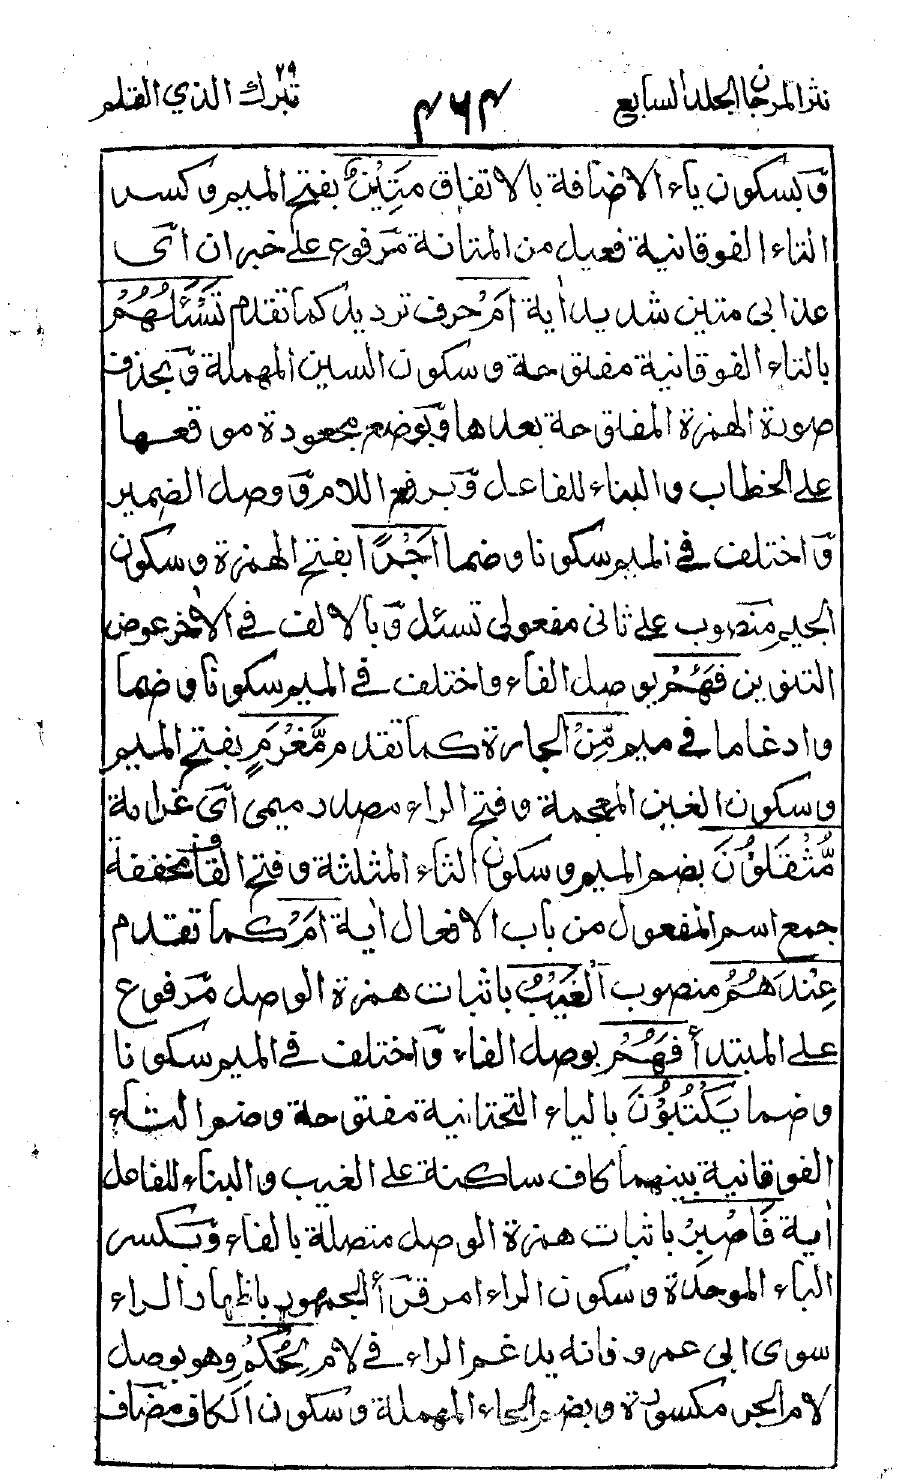 نثر المرجان الجلد السابع
٤٦٤
تبرك الذي ٢٩ القلم
وبسكون ياء الاضافة بالاتفاق مَتِيْنٌ بفتح الميم وكسر
التاء الفوقانية فعيل من المتانة مرفوع على خبر ان اى
عذابى متين شديد اٰية اَمْ حرف ترديد كما تقدم تَسْئَلُهُمْ
بالتاء الفوقانية مفتوحة وسكون السين المهملة وبحذف
صورة الهمزة المفتوحة بعدها وبوضع مجعودة موقعها
على الخطاب والبناء للفاعل وبرفع اللام ووصل الضمير
واختلف فى الميم سكونا وضما اَجْرًا بفتح الهمزة وسكون
الجيم منصوب على ثانى مفعولى تسئل وبالالف فى الاٰخر عوض
التنوين فَهُمْ بوصل الفاء واختلف فى الميم سكونا وضما
وادغاما فى ميم مِّنْ الجارة كما تقدم مَّغْرَمٍ بفتح الميم
وسكون الغين المعجمة وفتح الراء مصدر ميمى اى غرامة
مُّثْقَلُوْنَ بضم الميم وسكون الثاء المثلثة وفتح القاف مخففة
جمع اسم المفعول من باب الافعال اٰية اَمْ كما تقدم
عِنْدَهُمُ منصوب الْغَيْبُ باثبات همزة الوصل مرفوع
على المبتدأ فَهُمْ بوصل الفاء واختلف فى الميم سكونا
وضما يَكْتُبُوْنَ بالياء التحتانية مفتوحة وضم التاء
الفوقانية بينهما كاف ساكنة على الغيب والبناء للفاعل
اٰية فَاصْبِرْ باثبات همزة الوصل متصلة بالفاء وبكسر
الباء الموحدة وسكون الراء امر قرأ الجمهور باظهار الراء
سوى ابى عمرو فانه يدغم الراء فى لام لِحُكْمِ وهو بوصل
لام الجر مكسورة وبضم الحاء المهملة وسكون الكاف مضاف